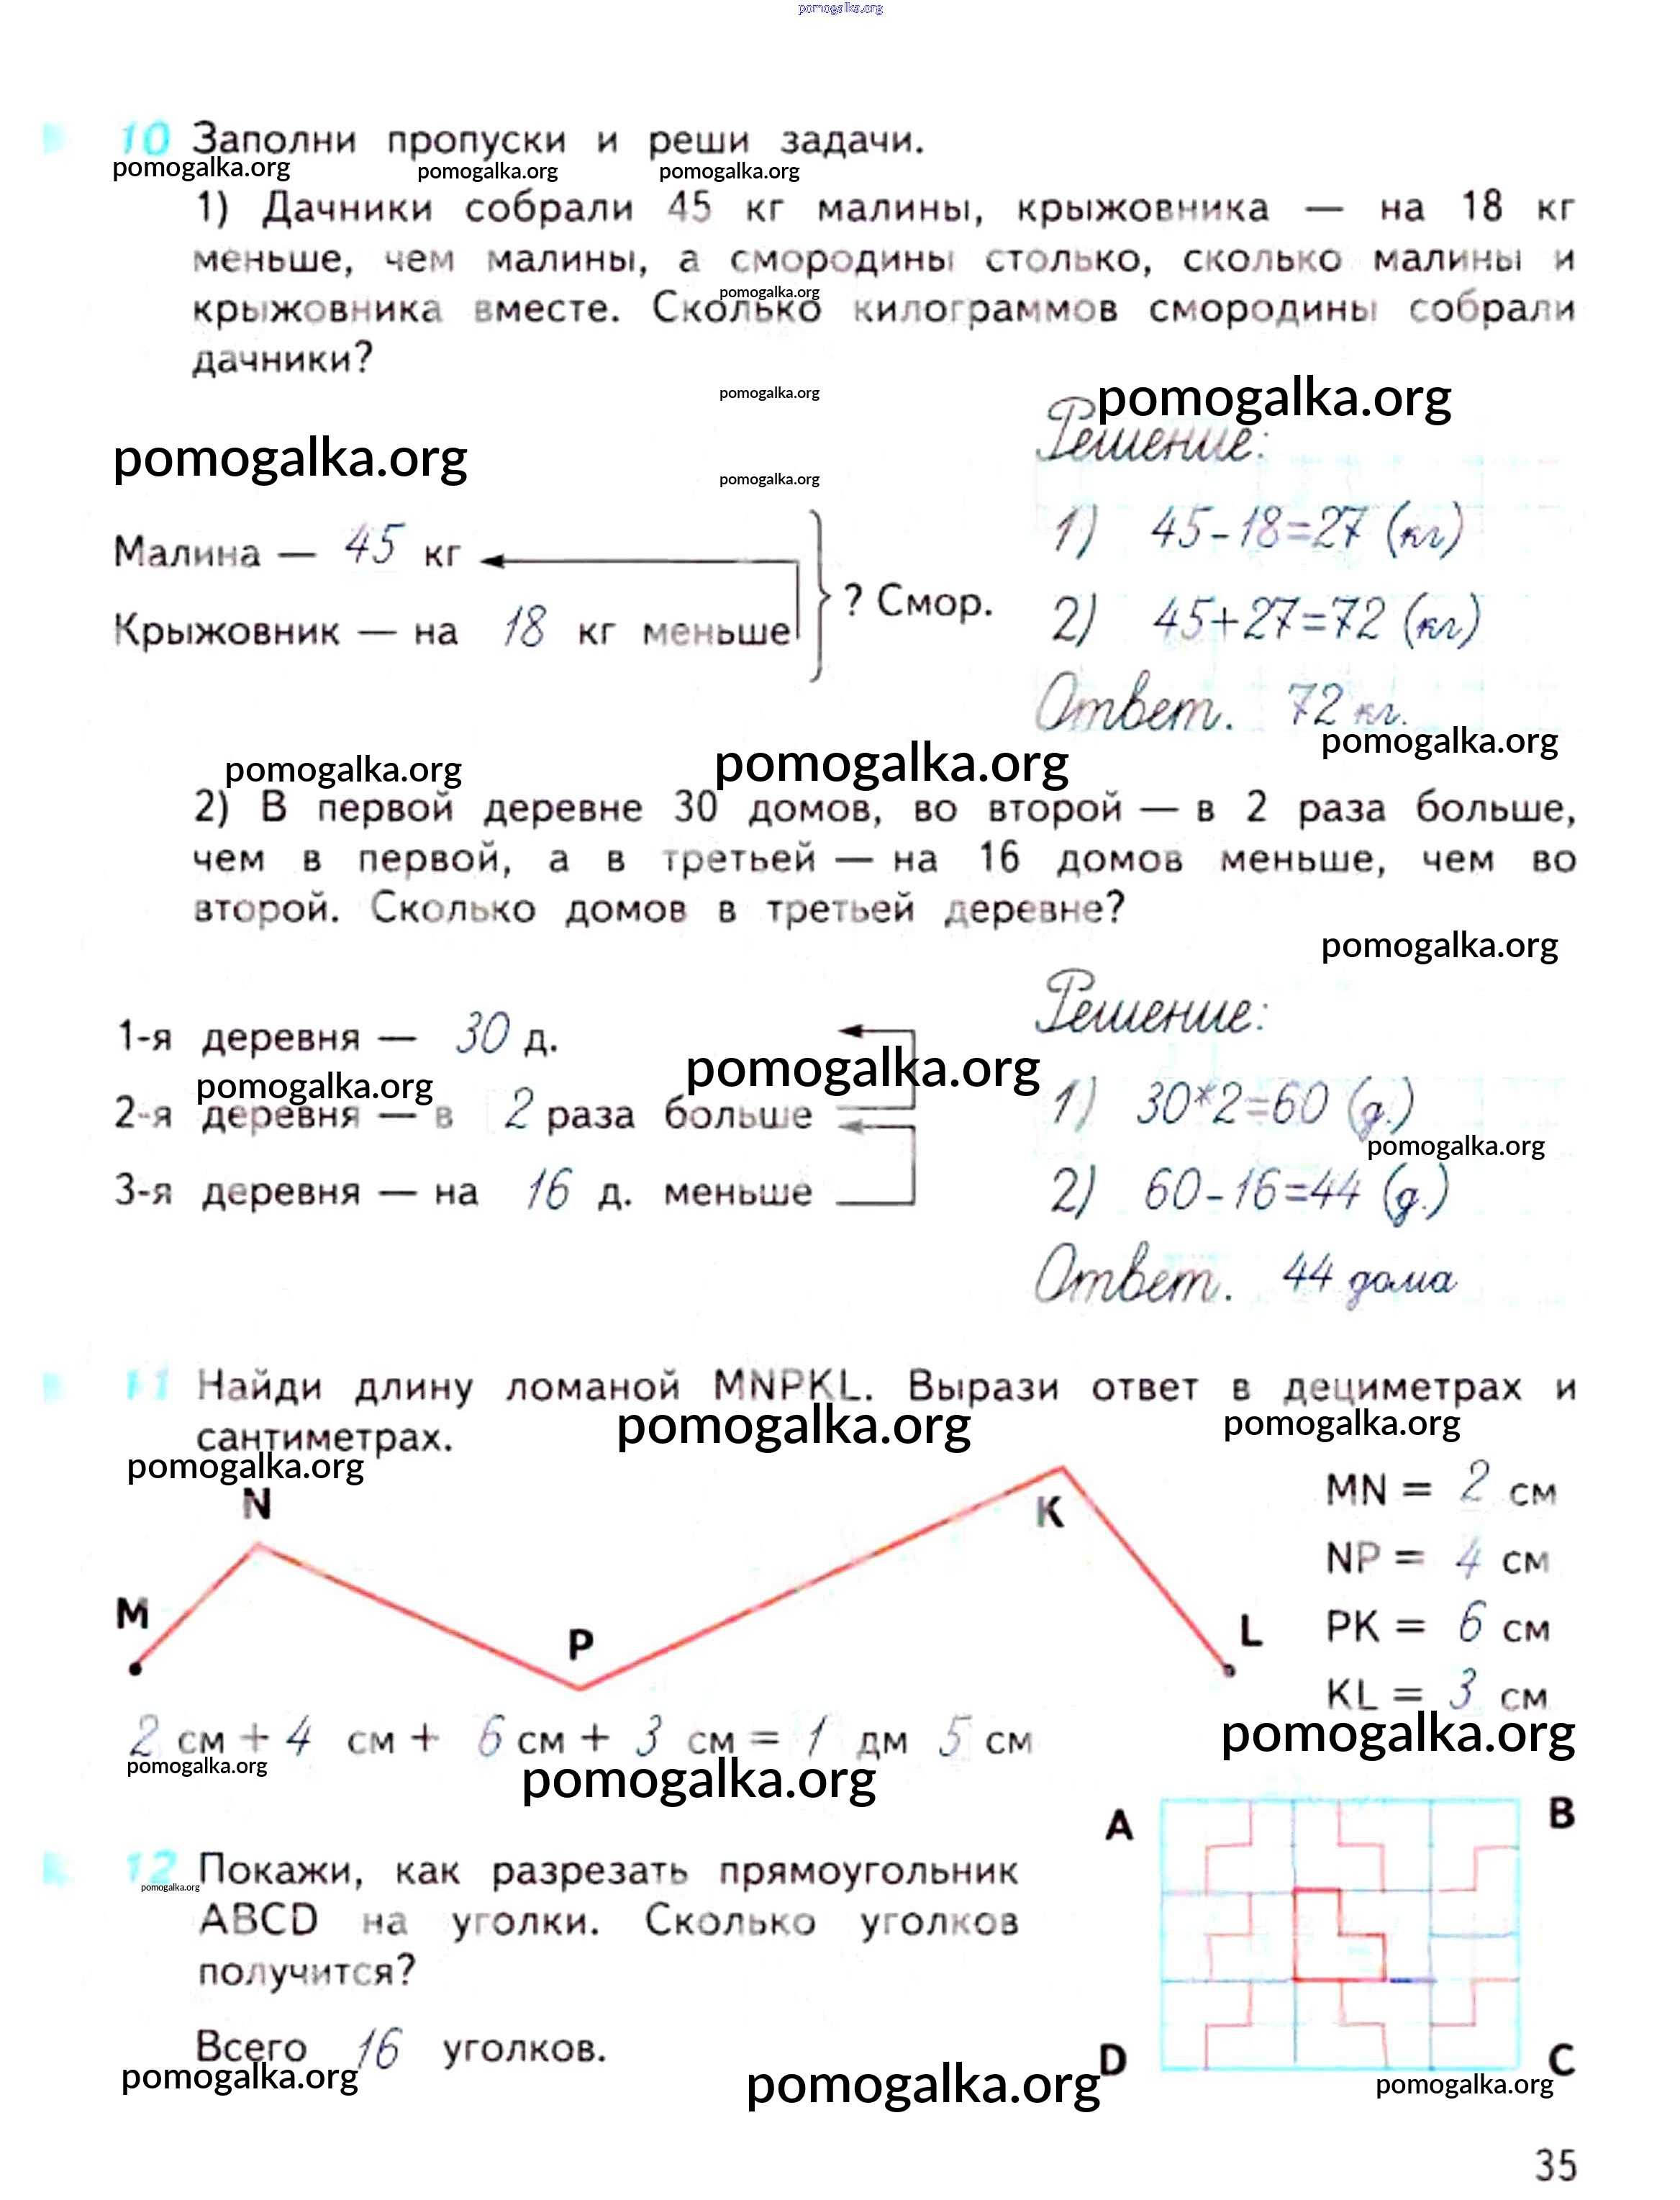 pomogalka.org
10 Заполни пропуски и реши задачи.
pomogalka.org pomogalka.org pomogalka.org
1) Дачники собрали 45 кг малины, крыжовника — на 18 кг
меньше, чем малины, а смородины столько, сколько малины и
pomogalka.org
крыжовника вместе. Сколько килограммов смородины собрали
дачники?
pomogalka.org pomogalka.org
Решение:
pomogalka.org
pomogalka.org
1) 45-18=27 (кг)
Малина — 45 кг
? Смор.
2) 45+27=72 (кг)
Крыжовник — на 18 кг меньше
Ответ. 72 кг.
pomogalka.org pomogalka.org pomogalka.org
2) В первой деревне 30 домов, во второй — в 2 раза больше,
чем в первой, а в третьей — на 16 домов меньше, чем во
второй. Сколько домов в третьей деревне?
pomogalka.org
Решение:
1-я деревня — 30 д.
pomogalka.org pomogalka.org
1) 30*2=60 (д.)
2-я деревня — в 2 раза больше
pomogalka.org
3-я деревня — на 16 д. меньше
2) 60-16=44 (д.)
Ответ. 44 дома
11 Найди длину ломаной MNPKL. Вырази ответ в дециметрах и
pomogalka.org pomogalka.org
сантиметрах.
pomogalka.org
N
K
MN = 2 см
NP = 4 см
M
P
L
PK = 6 см
KL = 3 см
pomogalka.org
2 см + 4 см + 6 см + 3 см = 1 дм 5 см
pomogalka.org pomogalka.org
A B
12 Покажи, как разрезать прямоугольник
pomogalka.org
ABCD на уголки. Сколько уголков
получится?
Всего 16 уголков.
D C
pomogalka.org pomogalka.org pomogalka.org
35